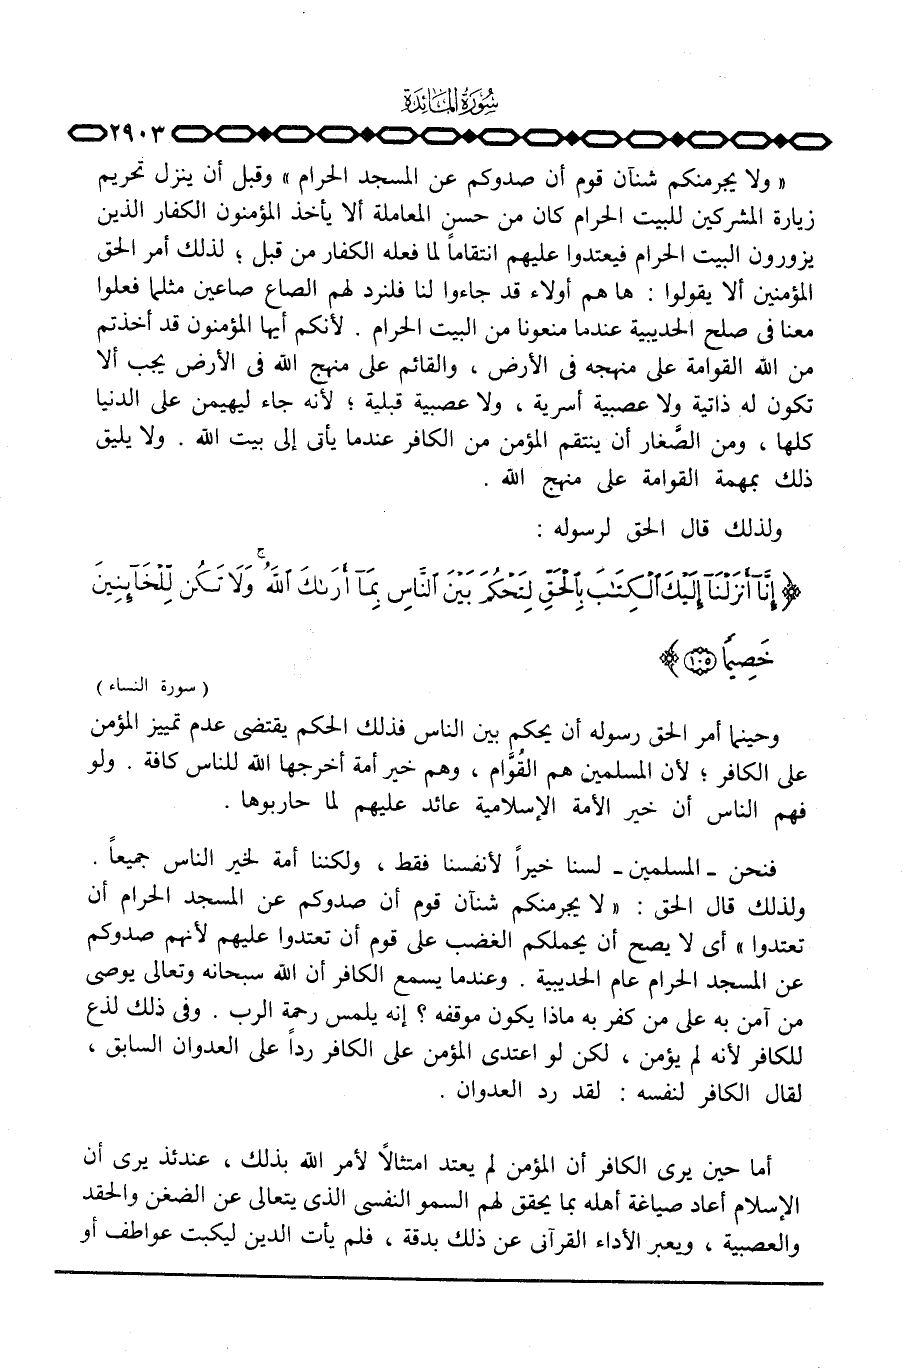 سُورَةُ المَائِدَةِ
٢٩٠٣
« ولا يجرمنكم شنآن قوم أن صدوكم عن المسجد الحرام » وقبل أن ينزل تحريم
زيارة المشركين للبيت الحرام كان من حسن المعاملة ألا يأخذ المؤمنون الكفار الذين
يزورون البيت الحرام فيعتدوا عليهم انتقاماً لما فعله الكفار من قبل ؛ لذلك أمر الحق
المؤمنين ألا يقولوا : ها هم أولاء قد جاءوا لنا فلنرد لهم الصاع صاعين مثلما فعلوا
معنا فى صلح الحديبية عندما منعونا من البيت الحرام . لأنكم أيها المؤمنون قد أخذتم
من الله القوامة على منهجه فى الأرض ، والقائم على منهج الله فى الأرض يجب ألا
تكون له ذاتية ولا عصبية أسرية ، ولا عصبية قبلية ؛ لأنه جاء ليهيمن على الدنيا
كلها ، ومن الصَّغار أن ينتقم المؤمن من الكافر عندما يأتى إلى بيت الله . ولا يليق
ذلك بمهمة القوامة على منهج الله .
ولذلك قال الحق لرسوله :
﴿ إِنَّآ أَنزَلْنَآ إِلَيْكَ ٱلْكِتَٰبَ بِٱلْحَقِّ لِتَحْكُمَ بَيْنَ ٱلنَّاسِ بِمَآ أَرَىٰكَ ٱللَّهُ ۚ وَلَا تَكُن لِّلْخَآئِنِينَ
خَصِيمًا ١٠٥ ﴾
( سورة النساء )
وحينما أمر الحق رسوله أن يحكم بين الناس فذلك الحكم يقتضى عدم تمييز المؤمن
على الكافر ؛ لأن المسلمين هم القُوَّام ، وهم خير أمة أخرجها الله للناس كافة . ولو
فهم الناس أن خير الأمة الإسلامية عائد عليهم لما حاربوها .
فنحن ـ المسلمين ـ لسنا خيراً لأنفسنا فقط ، ولكننا أمة لخير الناس جميعاً .
ولذلك قال الحق : « لا يجرمنكم شنآن قوم أن صدوكم عن المسجد الحرام أن
تعتدوا » أى لا يصح أن يحملكم الغضب على قوم أن تعتدوا عليهم لأنهم صدوكم
عن المسجد الحرام عام الحديبية . وعندما يسمع الكافر أن الله سبحانه وتعالى يوصى
من آمن به على من كفر به ماذا يكون موقفه ؟ إنه يلمس رحمة الرب . وفى ذلك لذع
للكافر لأنه لم يؤمن ، لكن لو اعتدى المؤمن على الكافر رداً على العدوان السابق ،
لقال الكافر لنفسه : لقد رد العدوان .
أما حين يرى الكافر أن المؤمن لم يعتد امتثالًا لأمر الله بذلك ، عندئذ يرى أن
الإسلام أعاد صياغة أهله بما يحقق لهم السمو النفسى الذى يتعالى عن الضغن والحقد
والعصبية ، ويعبر الأداء القرآنى عن ذلك بدقة ، فلم يأت الدين ليكبت عواطف أو